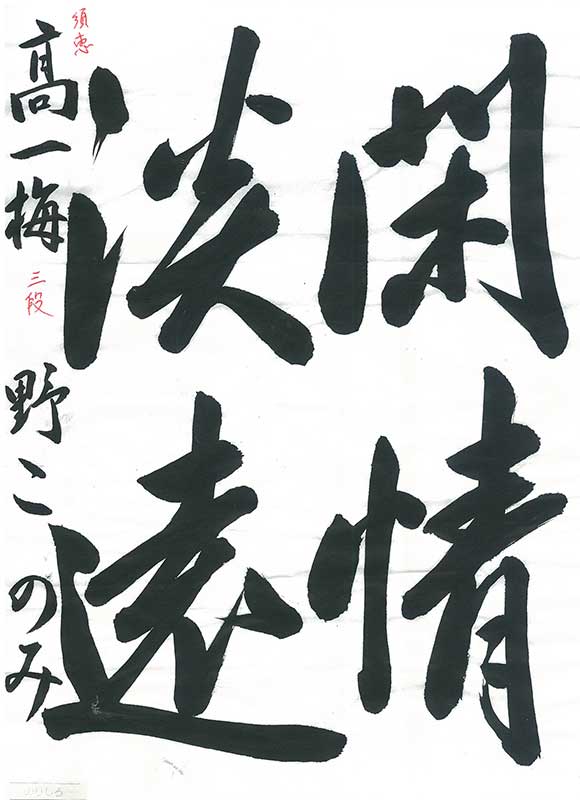 閑情
淡遠
須恵
高一梅野このみ
三段